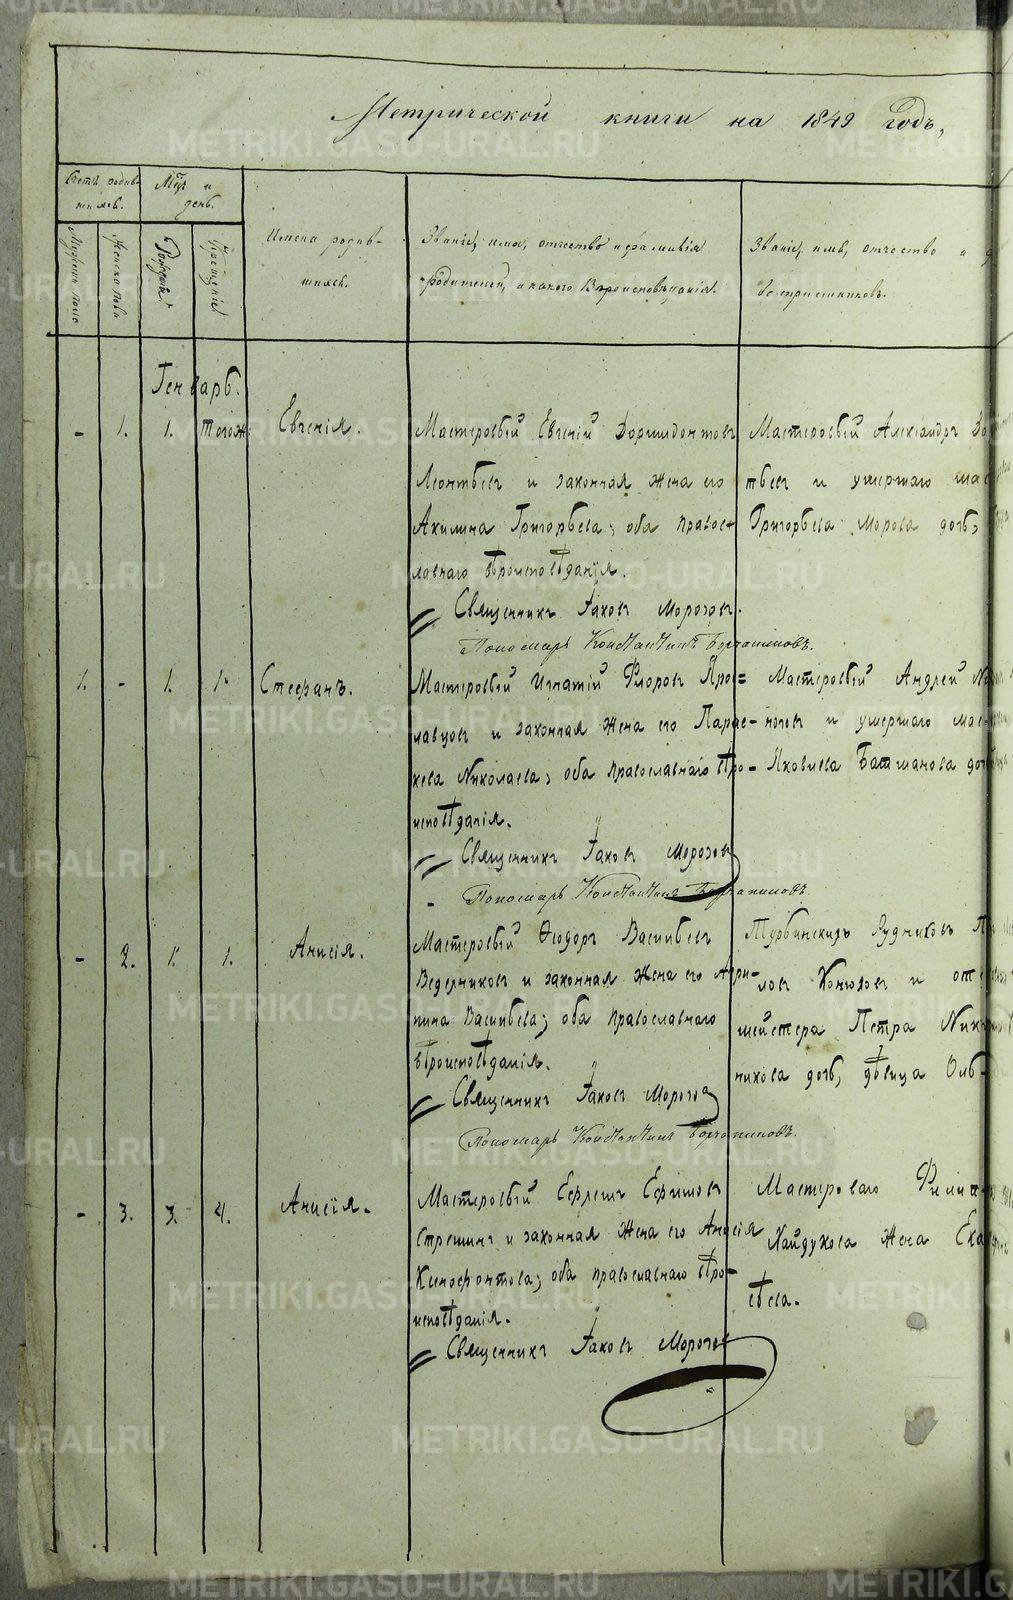 Метрической книги на 1849 годъ,
Счетъ родив-
шихся.
Мѣс. и
день.
Мужеска пола
Женска пола
Рожденія
Крещенія
Имена родив-
шихся.
Званіе, имя, отчество и фамилія
родителей, и какого Вѣроисповѣданія.
Званіе, имя, отчество и
воспріемниковъ.
Генварь.
- 1. 1. тогож
Евгенія.
Мастеровый Евгеній
Леонтьевъ и законная жена его
Акилина Григорьева; оба правос-
лавнаго вѣроисповѣданія.
Священникъ Іаковъ Морозовъ.
Пономарь Константинъ
Мастеровый Александръ
тьевъ и умершаго мас
Григорьева Морова дочь,
1. - 1. 1.
Стефанъ.
Мастеровый Игнатій Флоровъ Яро=
славцовъ и законная жена его Парас-
кева Николаева; оба православнаго вѣро-
исповѣданія.
Священникъ Іаковъ Морозовъ
Пономарь Константинъ
Мастеровый Андрей
и умершаго мас
Яковлева дочь
- 2. 1. 1.
Анисія.
Мастеровый Ѳеодоръ Васильевъ
Ведерниковъ и законная жена его Агри-
пина Васильева; оба православнаго
вѣроисповѣданія.
Священникъ Іаковъ Морозов
Пономарь Константинъ
Турьинскихъ Рудниковъ
ловъ Конюховъ и
шейстера Петра Ники
никова дочь, дѣвица
- 3. 3. 4.
Анисія.
Мастеровый Ефремъ Ефимовъ
и законная жена его Анисія
Ксенофонтова; оба православнаго вѣро-
исповѣданія.
Священникъ Іаковъ Морозов
Мастероваго Филип
Найдукова жена Ека
ѣева.
METRIKI.GASO-URAL.RU